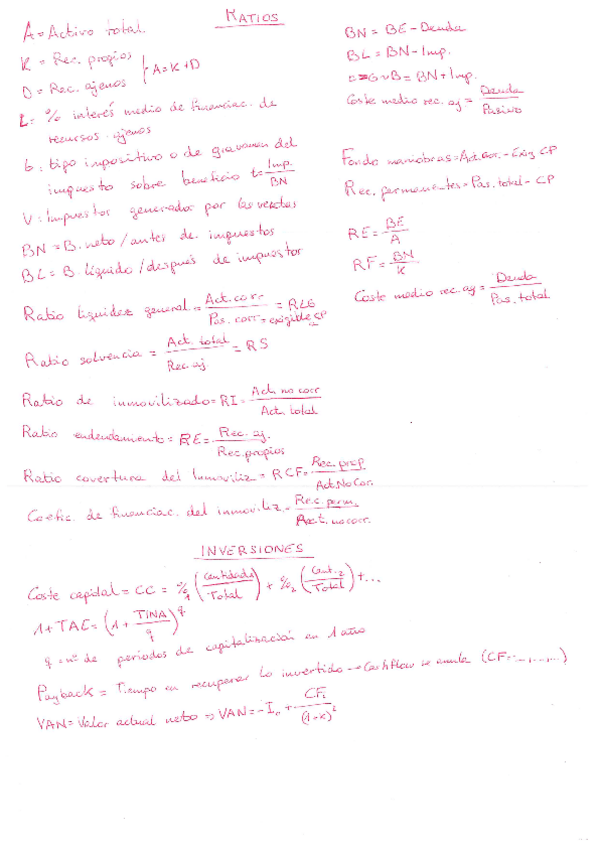 RATIOS
A = Activo total.
K = Rec. propios
D = Rec. ajenos
A = K + D
i = % interés medio de financiac. de
recursos ajenos
t: tipo impositivo o de gravamen del
impuesto sobre beneficio t = Imp. / BN
V = Impuestos generados por las ventas
BN = B. neto / antes de impuestos
BL = B. líquido / después de impuestos
Ratio liquidez general = Act. corr. / Pas. corr = exigible CP = RLG
Ratio solvencia = Act. total / Rec. aj = RS
Ratio de inmovilizado = RI = Act. no corr / Act. total
Ratio endeudamiento = RE = Rec. aj. / Rec. propios
Ratio covertura del Inmoviliz = RCF = Rec. prop / Act. No Cor.
Coefic. de financiac. del inmoviliz = Rec. perm. / Act. no corr.
BN = BE - Deuda
BL = BN - Imp.
= BN + Imp.
Coste medio rec. aj = Deuda / Pasivo
Fondo maniobras = Act. cor. - Exig CP
Rec. permanentes = Pas. total - CP
RE = BE / A
RF = BN / K
Coste medio rec. aj = Deuda / Pas. total
INVERSIONES
Coste capital = CC = %₁ (Cantidad₁ / Total) + %₂ (Cant.₂ / Total) + ...
1 + TAE = (1 + TINA / q)^q
q = nº de periodos de capitalización en 1 año
Payback = Tiempo en recuperar lo invertido → Cashflow se anula (CF = -, ..., ...)
VAN = Valor actual neto ⇒ VAN = - I₀ + CFi / (1+k)^i